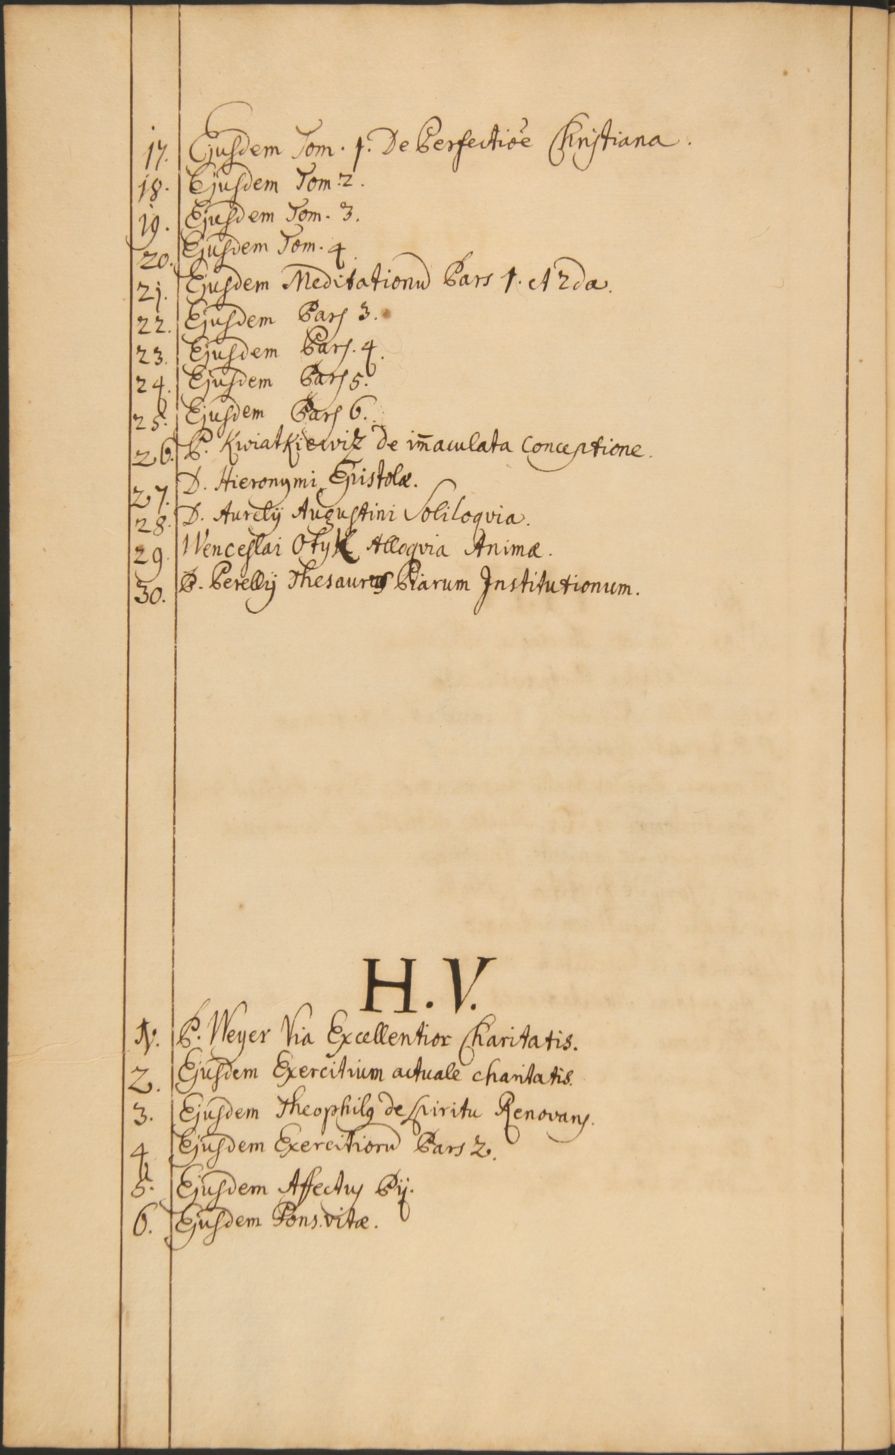 17. Ejusdem Tom. 1. De Perfectiõe Christiana.
18. Ejusdem Tom: 2.
19. Ejusdem Tom. 3.
20. Ejusdem Tom. 4.
21. Ejusdem Meditationũ Pars 1. et 2da.
22. Ejusdem Pars 3.
23. Ejusdem Pars. 4.
24. Ejusdem Pars 5.
25. Ejusdem Pars 6.
26. P. Kwiatkiewitz de im̃aculata Conceptione.
27. D. Hieronymi Epistolæ.
28. D. Aurelij Augustini Soliloqvia.
29. Wenceslai Alloqvia Animæ.
30. P. Perellij Thesaurus Piarum Institutionum.
H. V.
1. P. Weyer Via Excellentior Charitatis.
2. Ejusdem Exercitium actuale charitatis.
3. Ejusdem Theophilꝰ de Spiritu Renovans.
4. Ejusdem Exercitiorũ Pars 2.
5. Ejusdem Affectus Pij.
6. Ejusdem Pons vitæ.